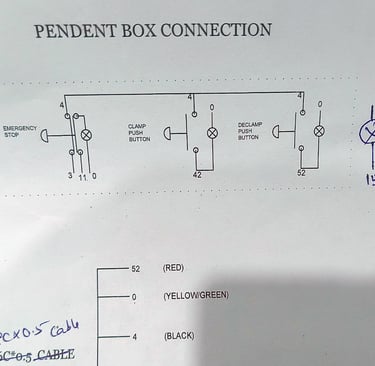 PENDENT BOX CONNECTION
4 4 4
0 0
EMERGENCY
STOP
CLAMP
PUSH
BUTTON
DECLAMP
PUSH
BUTTON
3 11 0 42 52
52 (RED)
0 (YELLOW/GREEN)
4 (BLACK)
CX0.5 Cable
C*0.5 CABLE